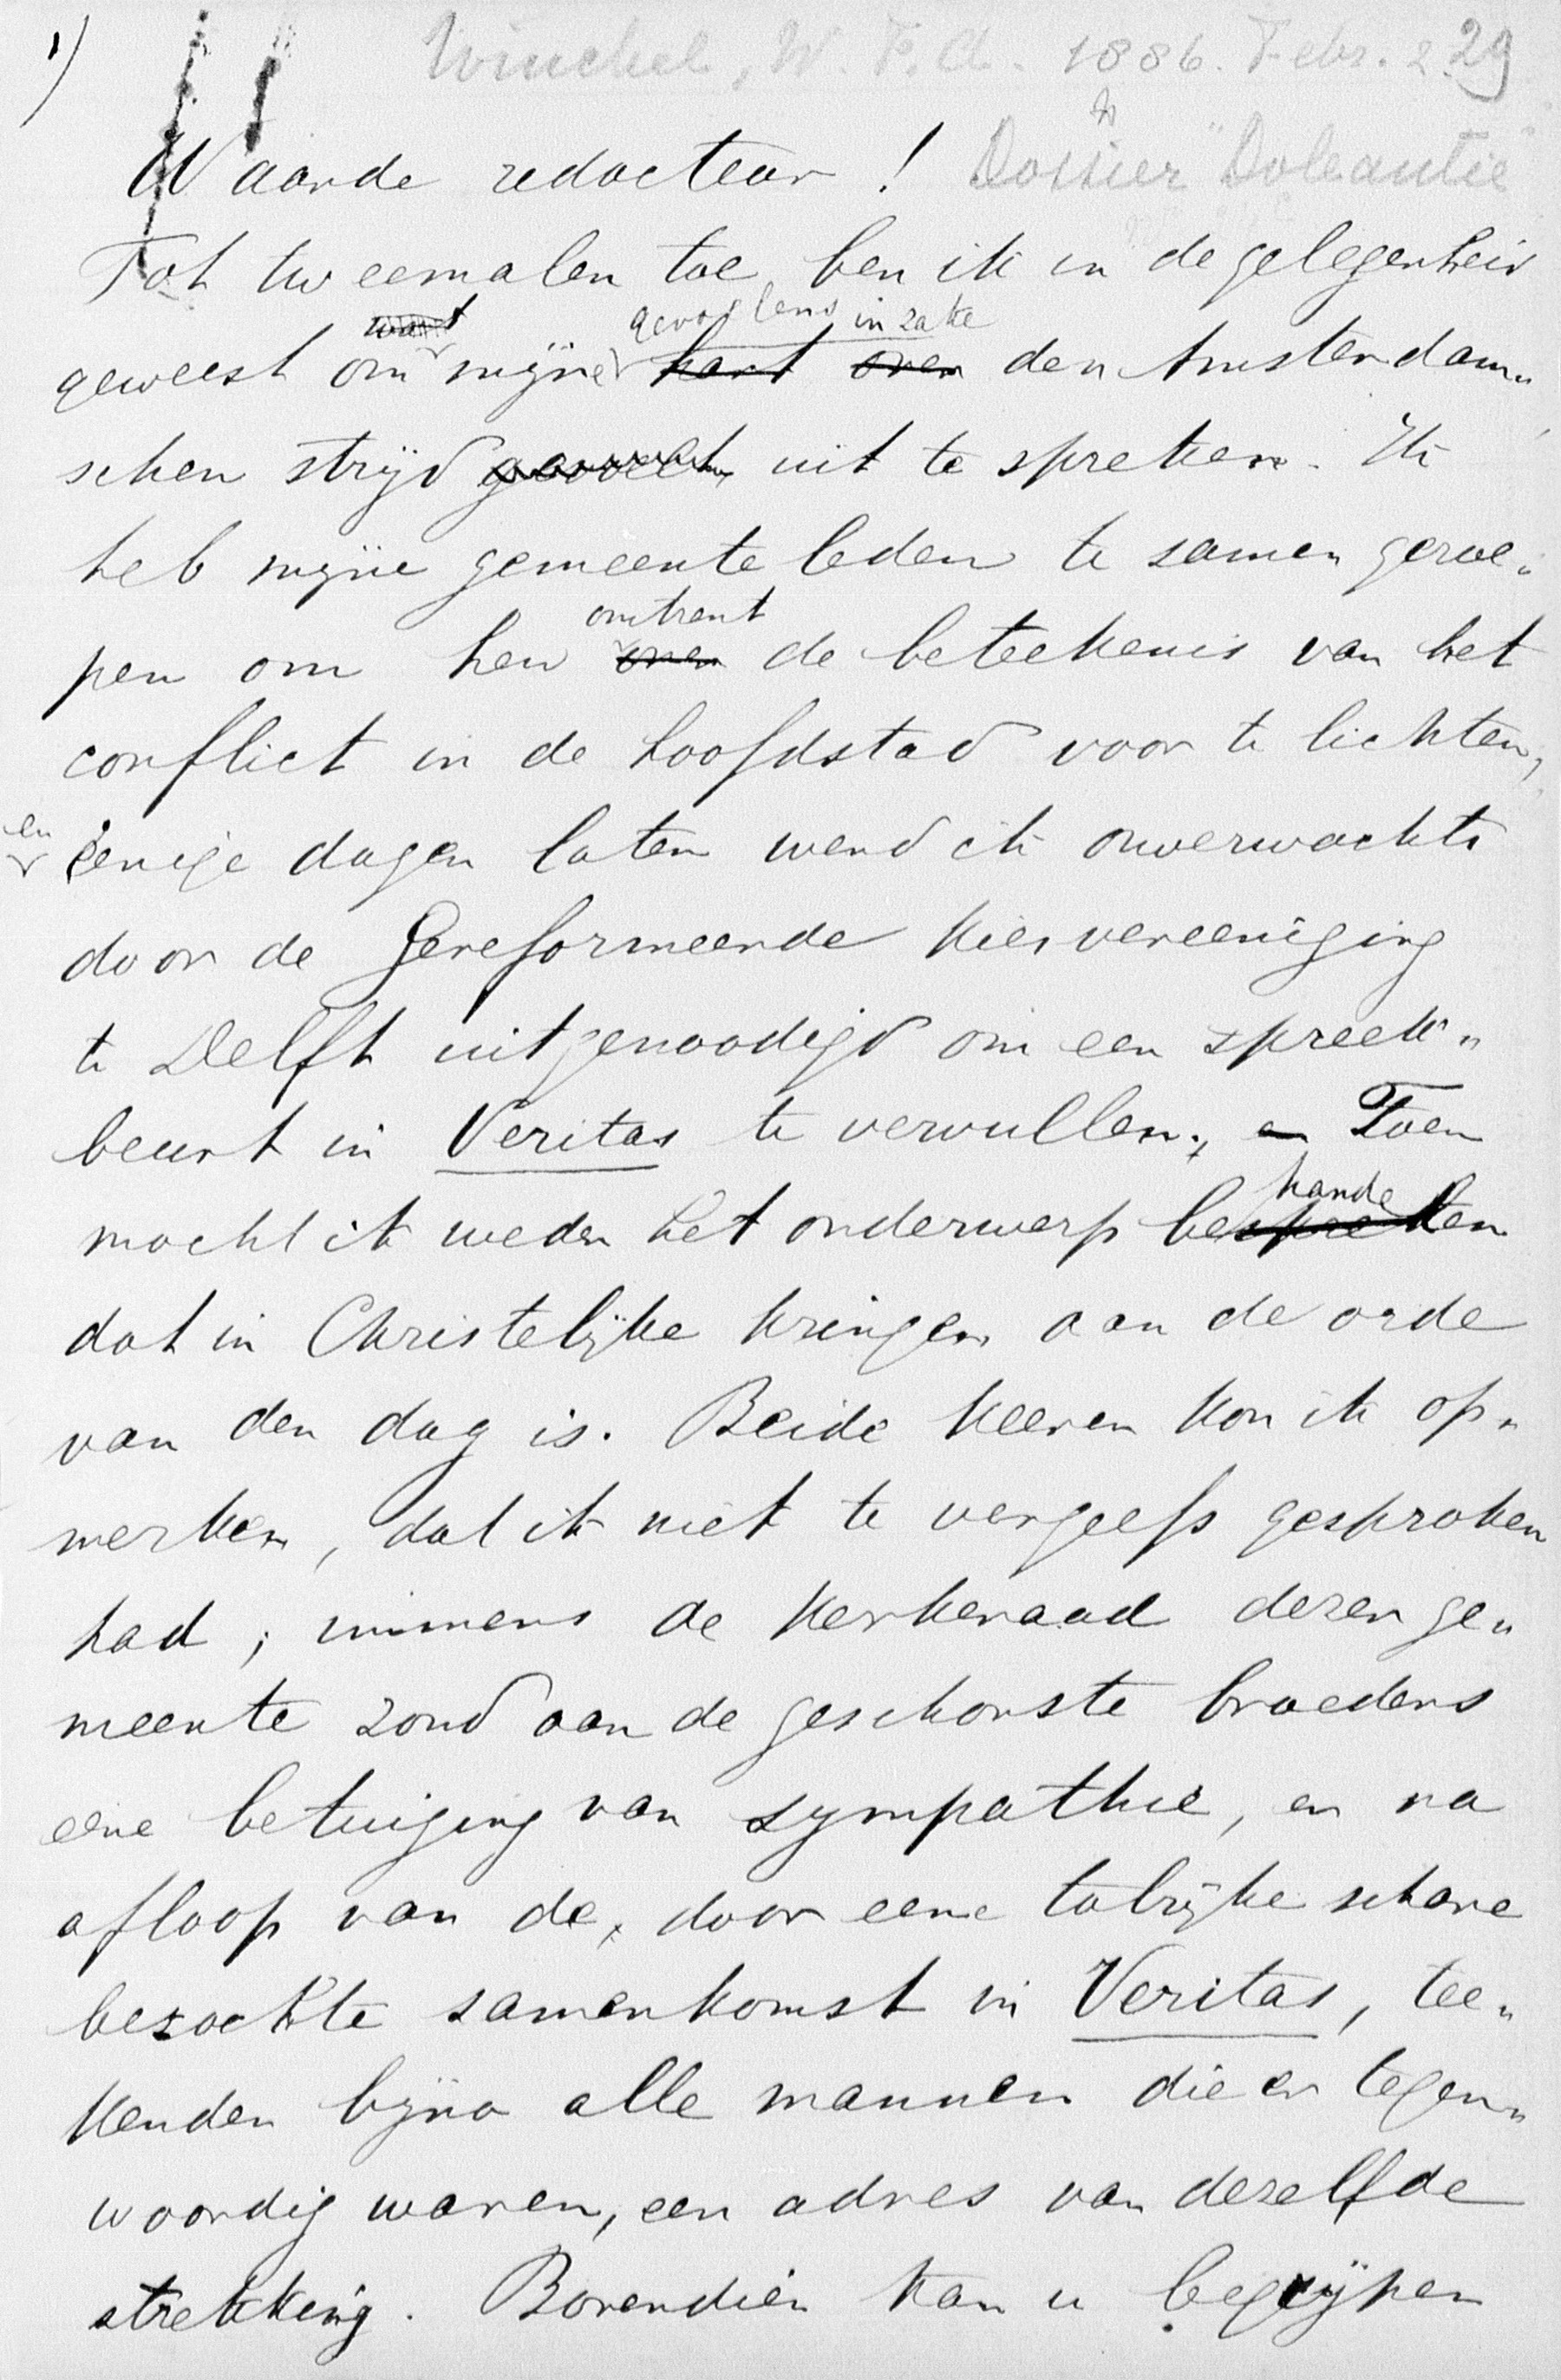 1)
Winckel, W. F. A. 1886. Febr. 2 29
Dossier "Doleantie"
Waarde redacteur!
Tot tweemalen toe ben ik in de gelegenheid
want gevoelens in zake
geweest om mijne hart over den Amsterdam„
schen strijd gevoelens uit te spreken. Ik
heb mijne gemeente leden te samen geroe„
omtrent
pen om hen over de beteekenis van het
conflict in de hoofdstad voor te lichten,
en eenige dagen later werd ik onverwachts
door de Gereformeerde Kiesvereeniging
te Delft uitgenoodigd om een spreek„
beurt in Veritas te vervullen; en Toen
hande
mocht ik weder het onderwerp bespreken
dat in Christelijke kringen aan de orde
van den dag is. Beide keeren kon ik op„
merken, dat ik niet te vergeefs gesproken
had; immers de Kerkeraad dezer ge„
meente zond aan de geschorste broeders
eene betuiging van sympathie, en na
afloop van de, door eene talrijke schare
bezochte samenkomst in Veritas, tee„
kenden bijna alle mannen die er tegen„
woordig waren, een adres van dezelfde
strekking. Bovendien kan u begrijpen